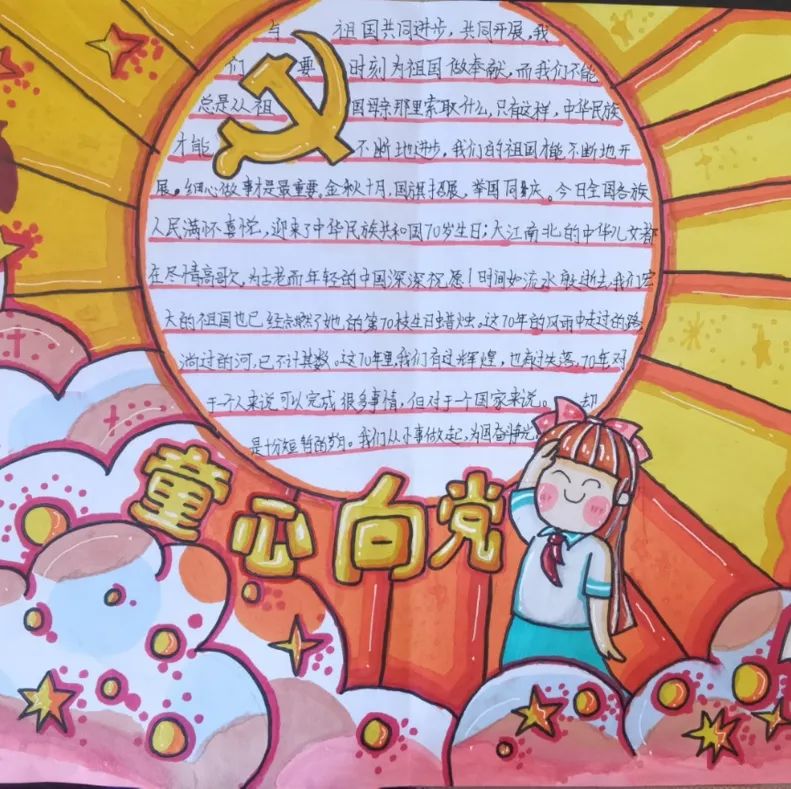 与 祖国共同进步，共同开展，我
们 要 时刻为祖国做奉献，而我们不能
总是从祖 国母亲那里索取什么，只有这样，中华民族
才能 不断地进步，我们的祖国才能不断地开
展。细心做事才是最重要。金秋十月，国旗招展，举国同庆。今日全国各族
人民满怀喜悦，迎来了中华民族共和国70岁生日；大江南北的中华儿女都
在尽情高歌，为古老而年轻的中国深深祝愿！时间如流水般逝去，我们宏
大的祖国也已经点燃了她的第70枝生日蜡烛。这70年的风雨中走过的路
淌过的河，已不计其数。这70年里，我们有过辉煌，也有过失落，70年对
于一个人来说可以完成很多事情，但对于一个国家来说。 却
是十分短暂的岁月。我们从小事做起，为国奋
童心向党